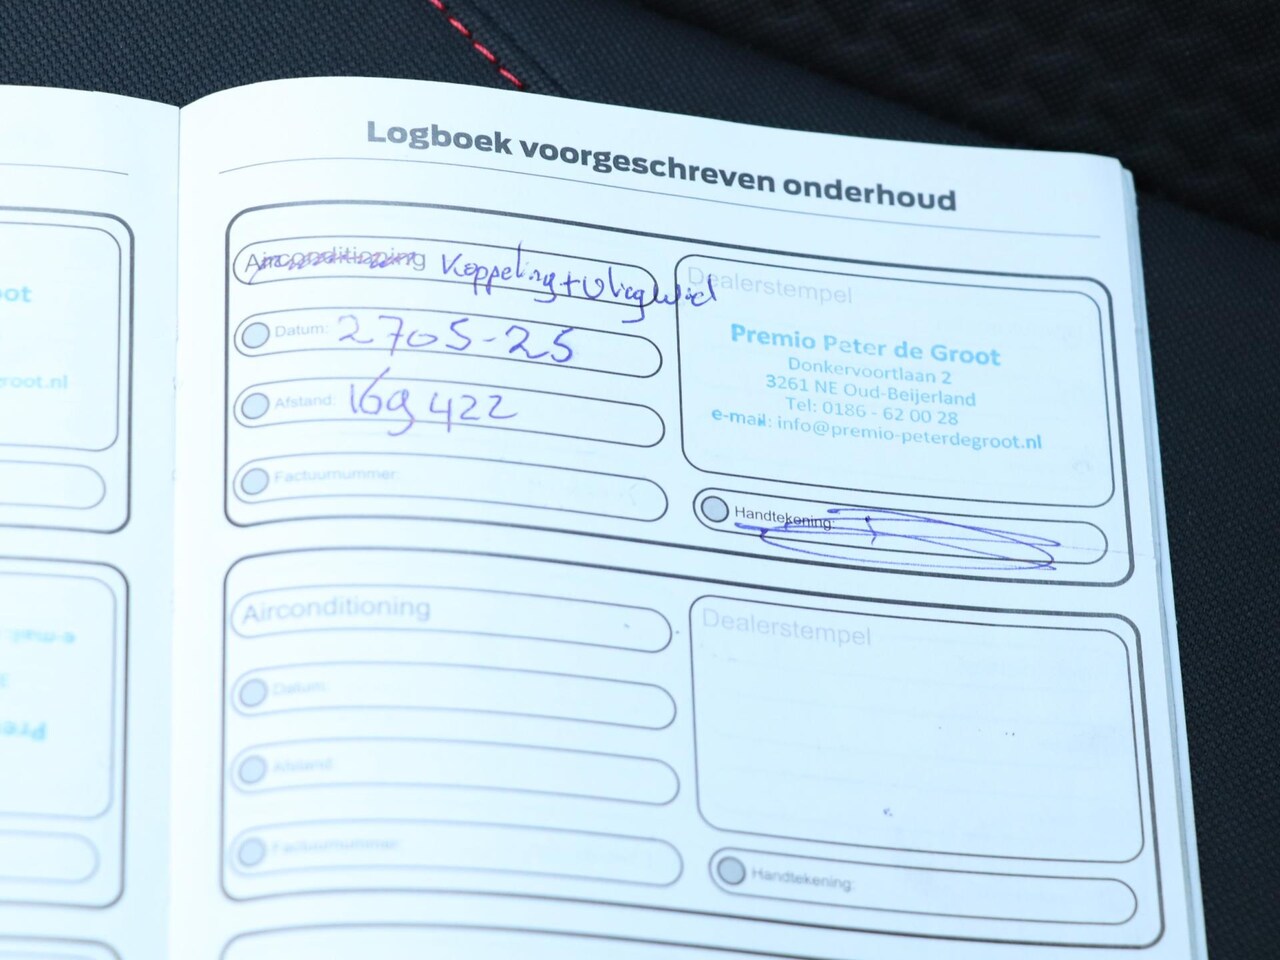 Logboek voorgeschreven onderhoud
Airconditioning Koppeling + Vliegwiel
Datum: 2705-25
Afstand: 169 422
Factuurnummer:
Dealerstempel
Premio Peter de Groot
Donkervoortlaan 2
3261 NE Oud-Beijerland
Tel: 0186 - 62 00 28
e-mail: info@premio-peterdegroot.nl
Handtekening:
Airconditioning
Datum:
Afstand:
Factuurnummer:
Dealerstempel
Handtekening:
oot
root.nl
e-mail: